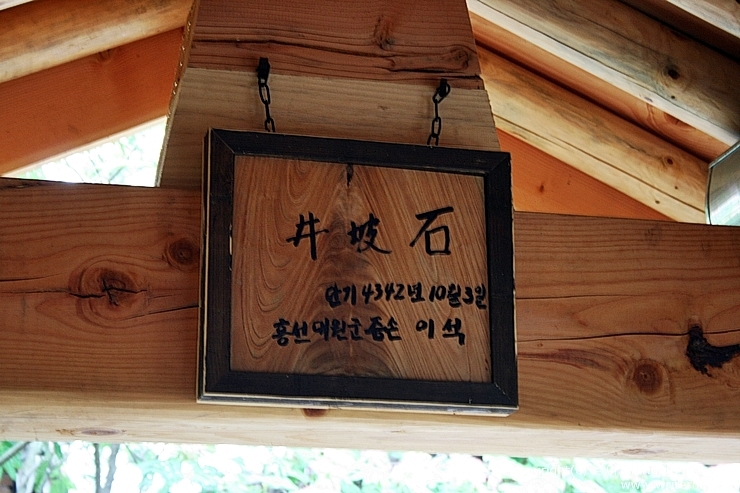 井坡石
단기 4342년 10월 3일
흥선대원군 증손 이석